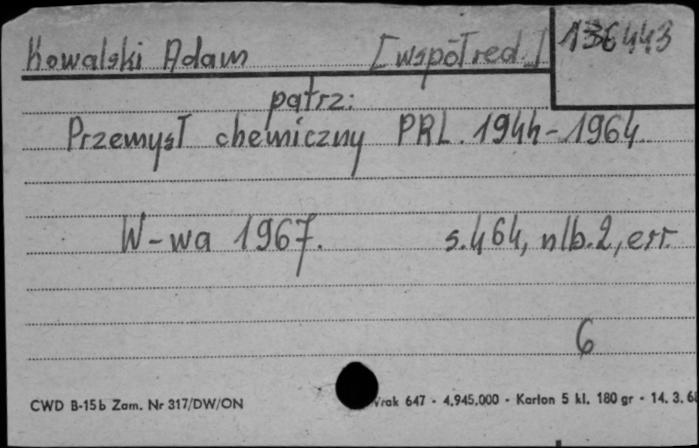 Kowalski Adam [współred.] 136443
patrz:
Przemysł chemiczny PRL. 1944-1964.
W-wa 1967. s.464, nlb.2, err.
6
CWD B-15b Zam. Nr 317/DW/ON rak 647 - 4.945.000 - Karton 5 kl. 180 gr - 14. 3. 6